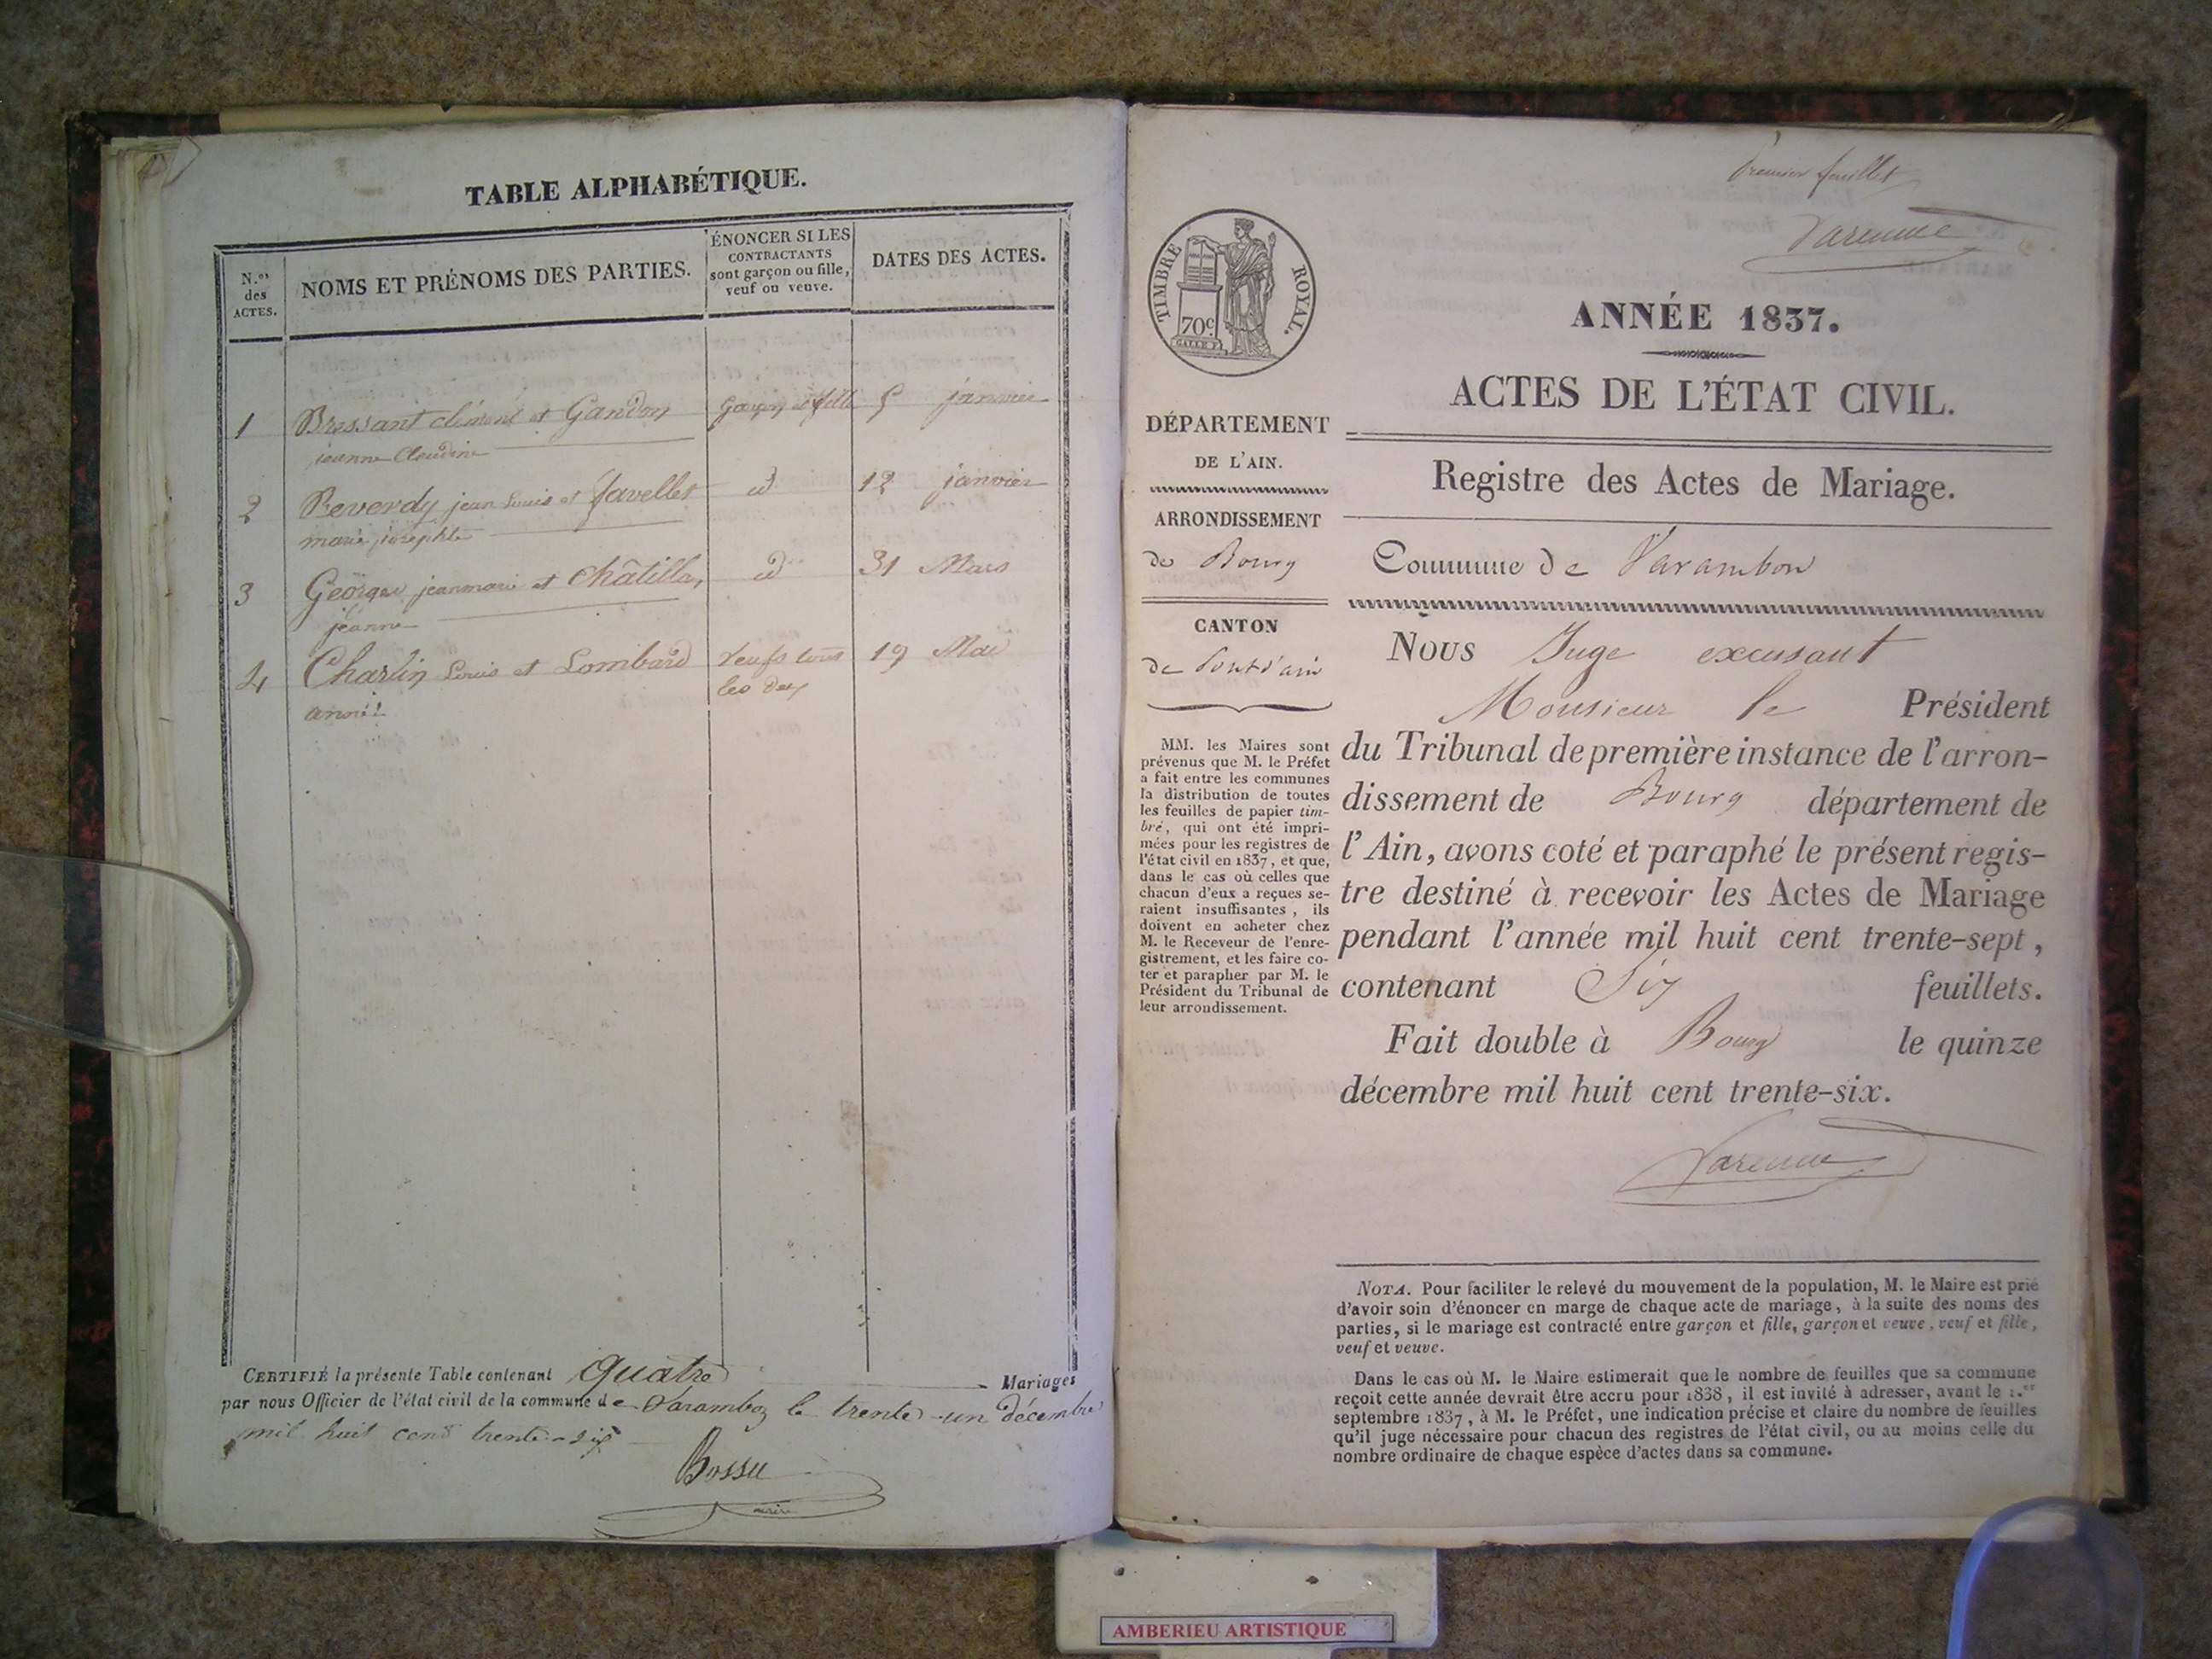 TABLE ALPHABÉTIQUE.
N.os des ACTES.
NOMS ET PRÉNOMS DES PARTIES.
ÉNONCER SI LES CONTRACTANTS sont garçon ou fille, veuf ou veuve.
DATES DES ACTES.
1 Bressant clément et Gandon garçon et fille 5 janvier
jeanne Claudine
2 Beverdy jean Louis et favellet id 12 janvier
marie josephte
3 George jeanmarie et Châtillon id 31 Mars
jeanne
4 Charlin Louis et Lombard veufs tous 19 Mai
année les deux
CERTIFIÉ la présente Table contenant quatre Mariages
par nous Officier de l'état civil de la commune de Varambon le trente-un décembre
mil huit cent trente-six
Bossu
maire
Premier feuillet
Varenne
TIMBRE ROYAL.
70c.
GALLE F.
ANNÉE 1837.
ACTES DE L'ÉTAT CIVIL.
DÉPARTEMENT
DE L'AIN.
ARRONDISSEMENT
de Bourg
CANTON
de Pont d'ain
MM. les Maires sont
prévenus que M. le Préfet
a fait entre les communes
la distribution de toutes
les feuilles de papier tim-
bré, qui ont été impri-
mées pour les registres de
l'état civil en 1837, et que,
dans le cas où celles que
chacun d'eux a reçues se-
raient insuffisantes, ils
doivent en acheter chez
M. le Receveur de l'enre-
gistrement, et les faire co-
ter et parapher par M. le
Président du Tribunal de
leur arrondissement.
Registre des Actes de Mariage.
Commune de Varambon
Nous Juge excusant
Monsieur le Président
du Tribunal de première instance de l'arron-
dissement de Bourg département de
l'Ain, avons coté et paraphé le présent regis-
tre destiné à recevoir les Actes de Mariage
pendant l'année mil huit cent trente-sept,
contenant Six feuillets.
Fait double à Bourg le quinze
décembre mil huit cent trente-six.
Varenne
NOTA. Pour faciliter le relevé du mouvement de la population, M. le Maire est prié
d'avoir soin d'énoncer en marge de chaque acte de mariage, à la suite des noms des
parties, si le mariage est contracté entre garçon et fille, garçon et veuve, veuf et fille,
veuf et veuve.
Dans le cas où M. le Maire estimerait que le nombre de feuilles que sa commune
reçoit cette année devrait être accru pour 1838, il est invité à adresser, avant le 1.er
septembre 1837, à M. le Préfet, une indication précise et claire du nombre de feuilles
qu'il juge nécessaire pour chacun des registres de l'état civil, ou au moins celle du
nombre ordinaire de chaque espèce d'actes dans sa commune.
AMBERIEU ARTISTIQUE